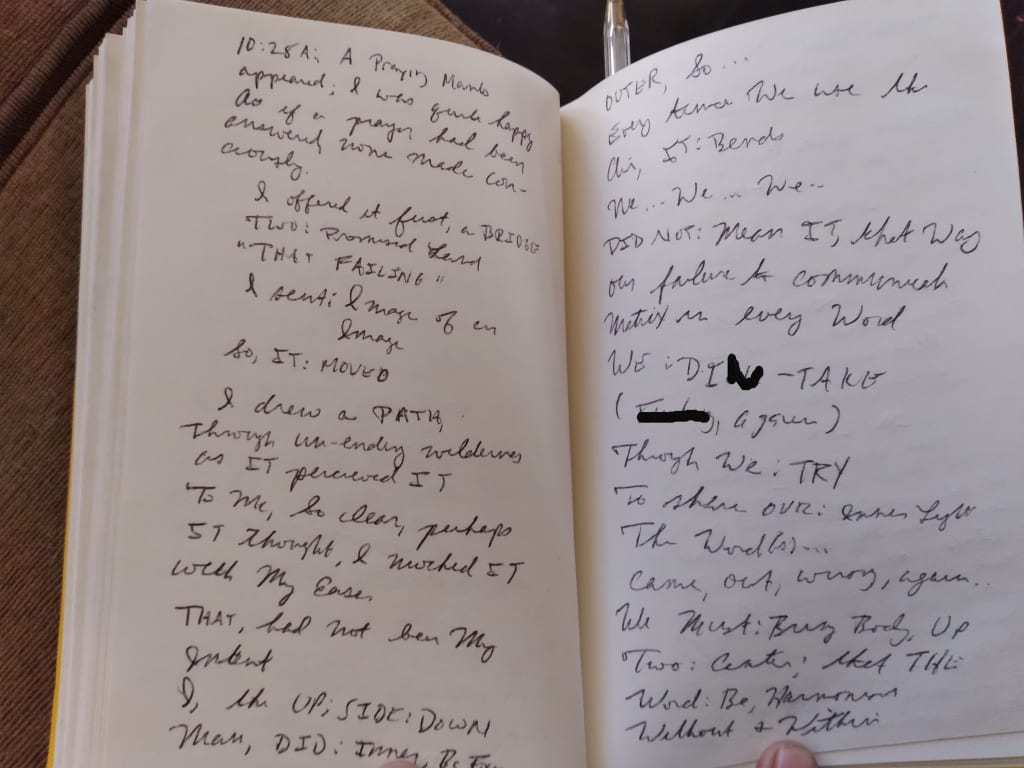 10:28A: A Praying Mantis
appeared; I was quite happy
As if a prayer had been
answered none made con-
ciously.
I offered it first, a BRIDGE
TWO: Promised Land
"THAT FAILING"
I sent: Image of an
Image
So, IT: MOVED
I drew a PATH,
Through un-ending wilderness
as IT perceived IT
To Me, So clear, perhaps
IT thought, I mocked IT
with My Ease,
THAT, had not been My
Intent
I, the UP: SIDE: DOWN
Man, DID: Inner, Be
OUTER, So...
Every time We use the
Air, IT: Bends
We... We... We..
DID NOT: Mean IT, that Way
our failure to communicate
Matrix in every Word
WE : -TAKE
(, again)
Through We: TRY
To share OUR: Inner Light
The Word(s)...
Came, out, wrong, again..
We Must: Busy Body, UP
Two: Center; that THE
Word: Be, Harmonious
Without & Within